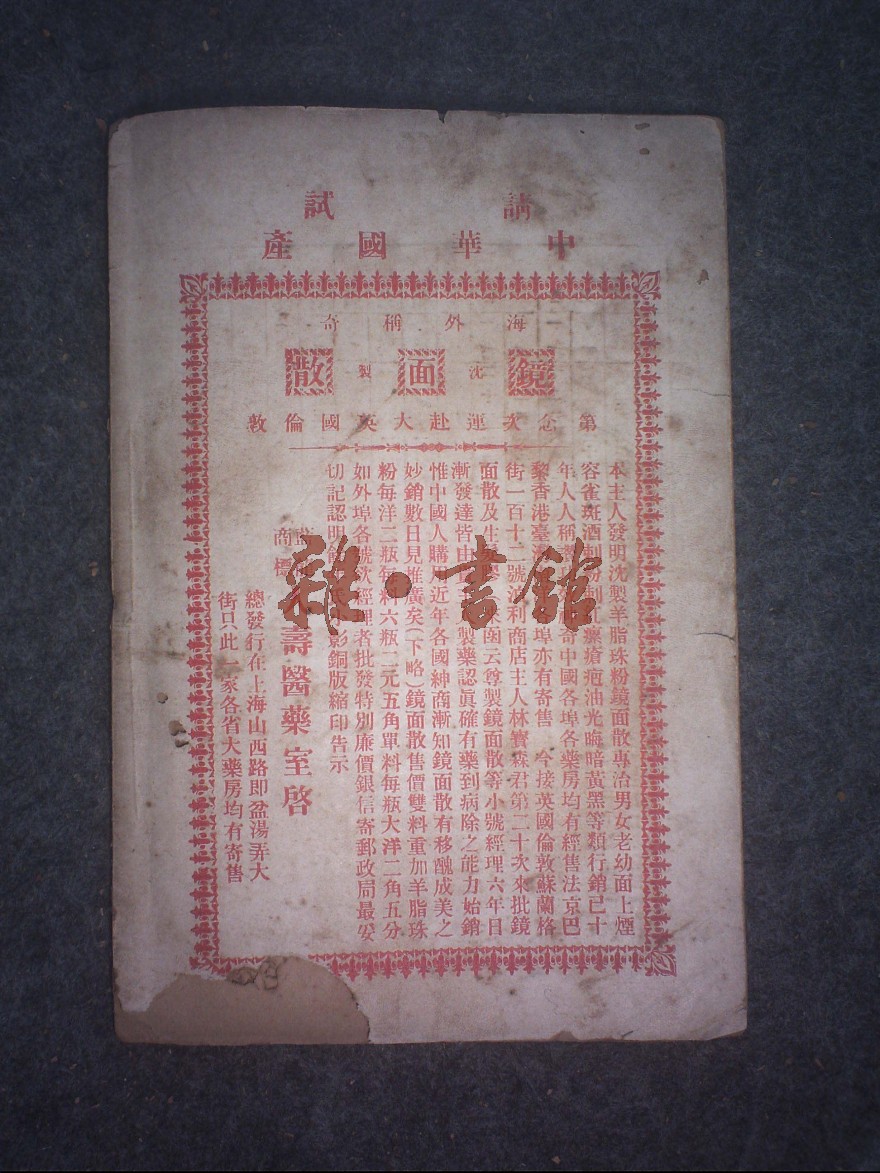 請試
中華國產
海外稱奇
鏡面散
沈製
第念次運赴大英國倫敦
本主人發明沈製羊脂珠粉鏡面散專治男女老幼面上煙
容雀斑酒刺粉刺瘢瘡疤油光晦暗黃黑等類行銷已十
年人人稱寄中國各埠各藥房均有經售法京巴
黎香港臺埠亦有寄售 今接英國倫敦蘇蘭格
街一百十二號利商店主人林寶森君第二十次來批鏡
面散及生來函云尊製鏡面散等小號經理六年目
漸發達皆由製藥認眞確有藥到病除之能力始銷
惟中國人購用近年各國紳商漸知鏡面散有移醜成美之
妙銷數日見推廣矣(下略)鏡面散售價雙料重加羊脂珠
粉每洋二瓶每料六瓶二元五角單料每瓶大洋二角五分
如外埠各號欲經理者批發特別廉價銀信寄郵政局最妥
切記認明影銅版縮印告示
商標
壽醫藥室啓
總發行在上海山西路即盆湯弄大
街只此一家各省大藥房均有寄售
雜·書館